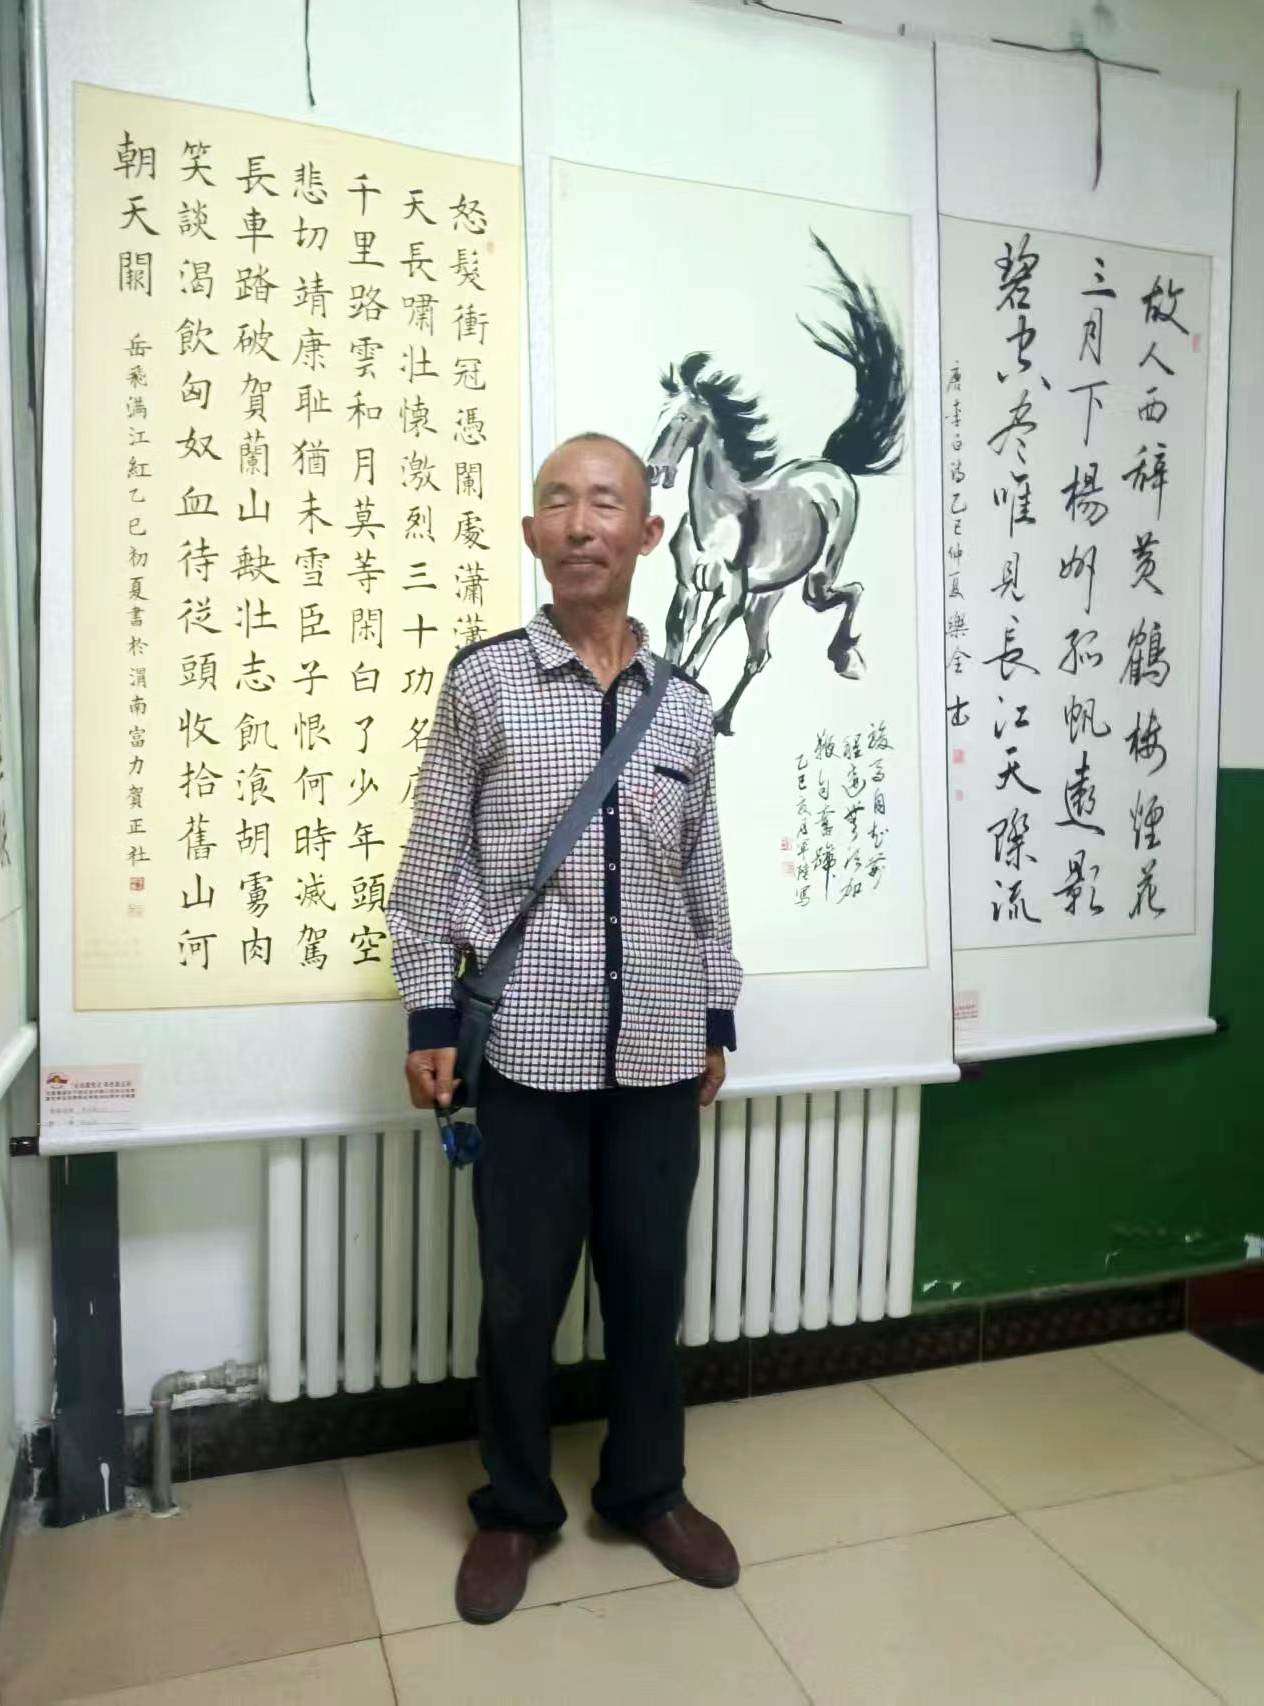 故人西辞黄鶴楼煙花
三月下楊州孤帆遠影
碧空尽唯見長江天際流
唐李白詩乙巳仲夏樂全书
駿馬自知前
程遠無須加
鞭自奮蹄
乙巳夏月軍陸寫
怒髮衝冠憑闌處瀟瀟
天長嘯壮懷激烈三十功名
千里路雲和月莫等閑白了少年頭空
悲切靖康耻猶未雪臣子恨何時滅駕
長車踏破賀蘭山缺壮志飢飡胡虜肉
笑談渴飲匈奴血待從頭收拾舊山河
朝天闕
岳飛满江紅乙巳初夏書於渭南富力賀正社